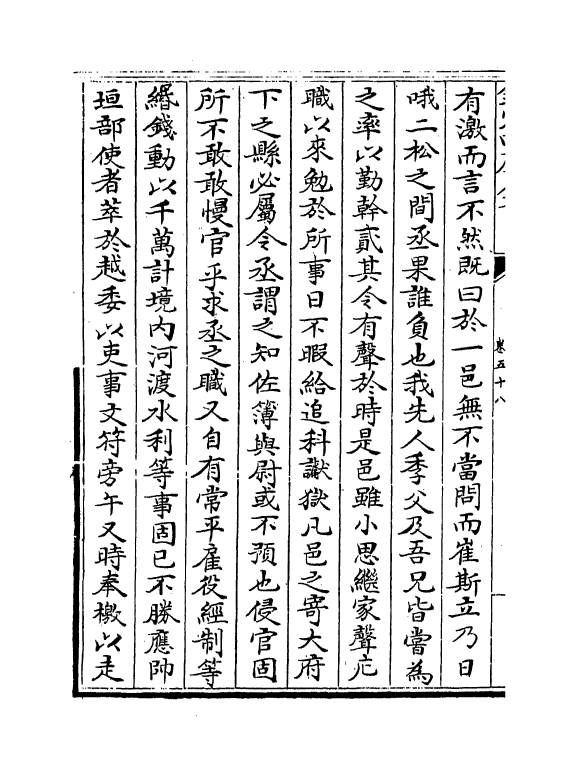 卷五十八
有激而言不然既曰於一邑無不當問而崔斯立乃日
哦二松之間丞果誰負也我先人季父及吾兄皆嘗為
之率以勤幹貳其令有聲於時是邑雖小思繼家聲庀
職以來勉於所事日不暇給追科讞獄凡邑之寄大府
下之縣必屬令丞謂之知佐簿與尉或不預也侵官固
所不敢敢慢官乎求丞之職又自有常平雇役經制等
緡錢動以千萬計境内河渡水利等事固已不勝應帥
垣部使者萃於越委以吏事文符旁午又時奉檄以走